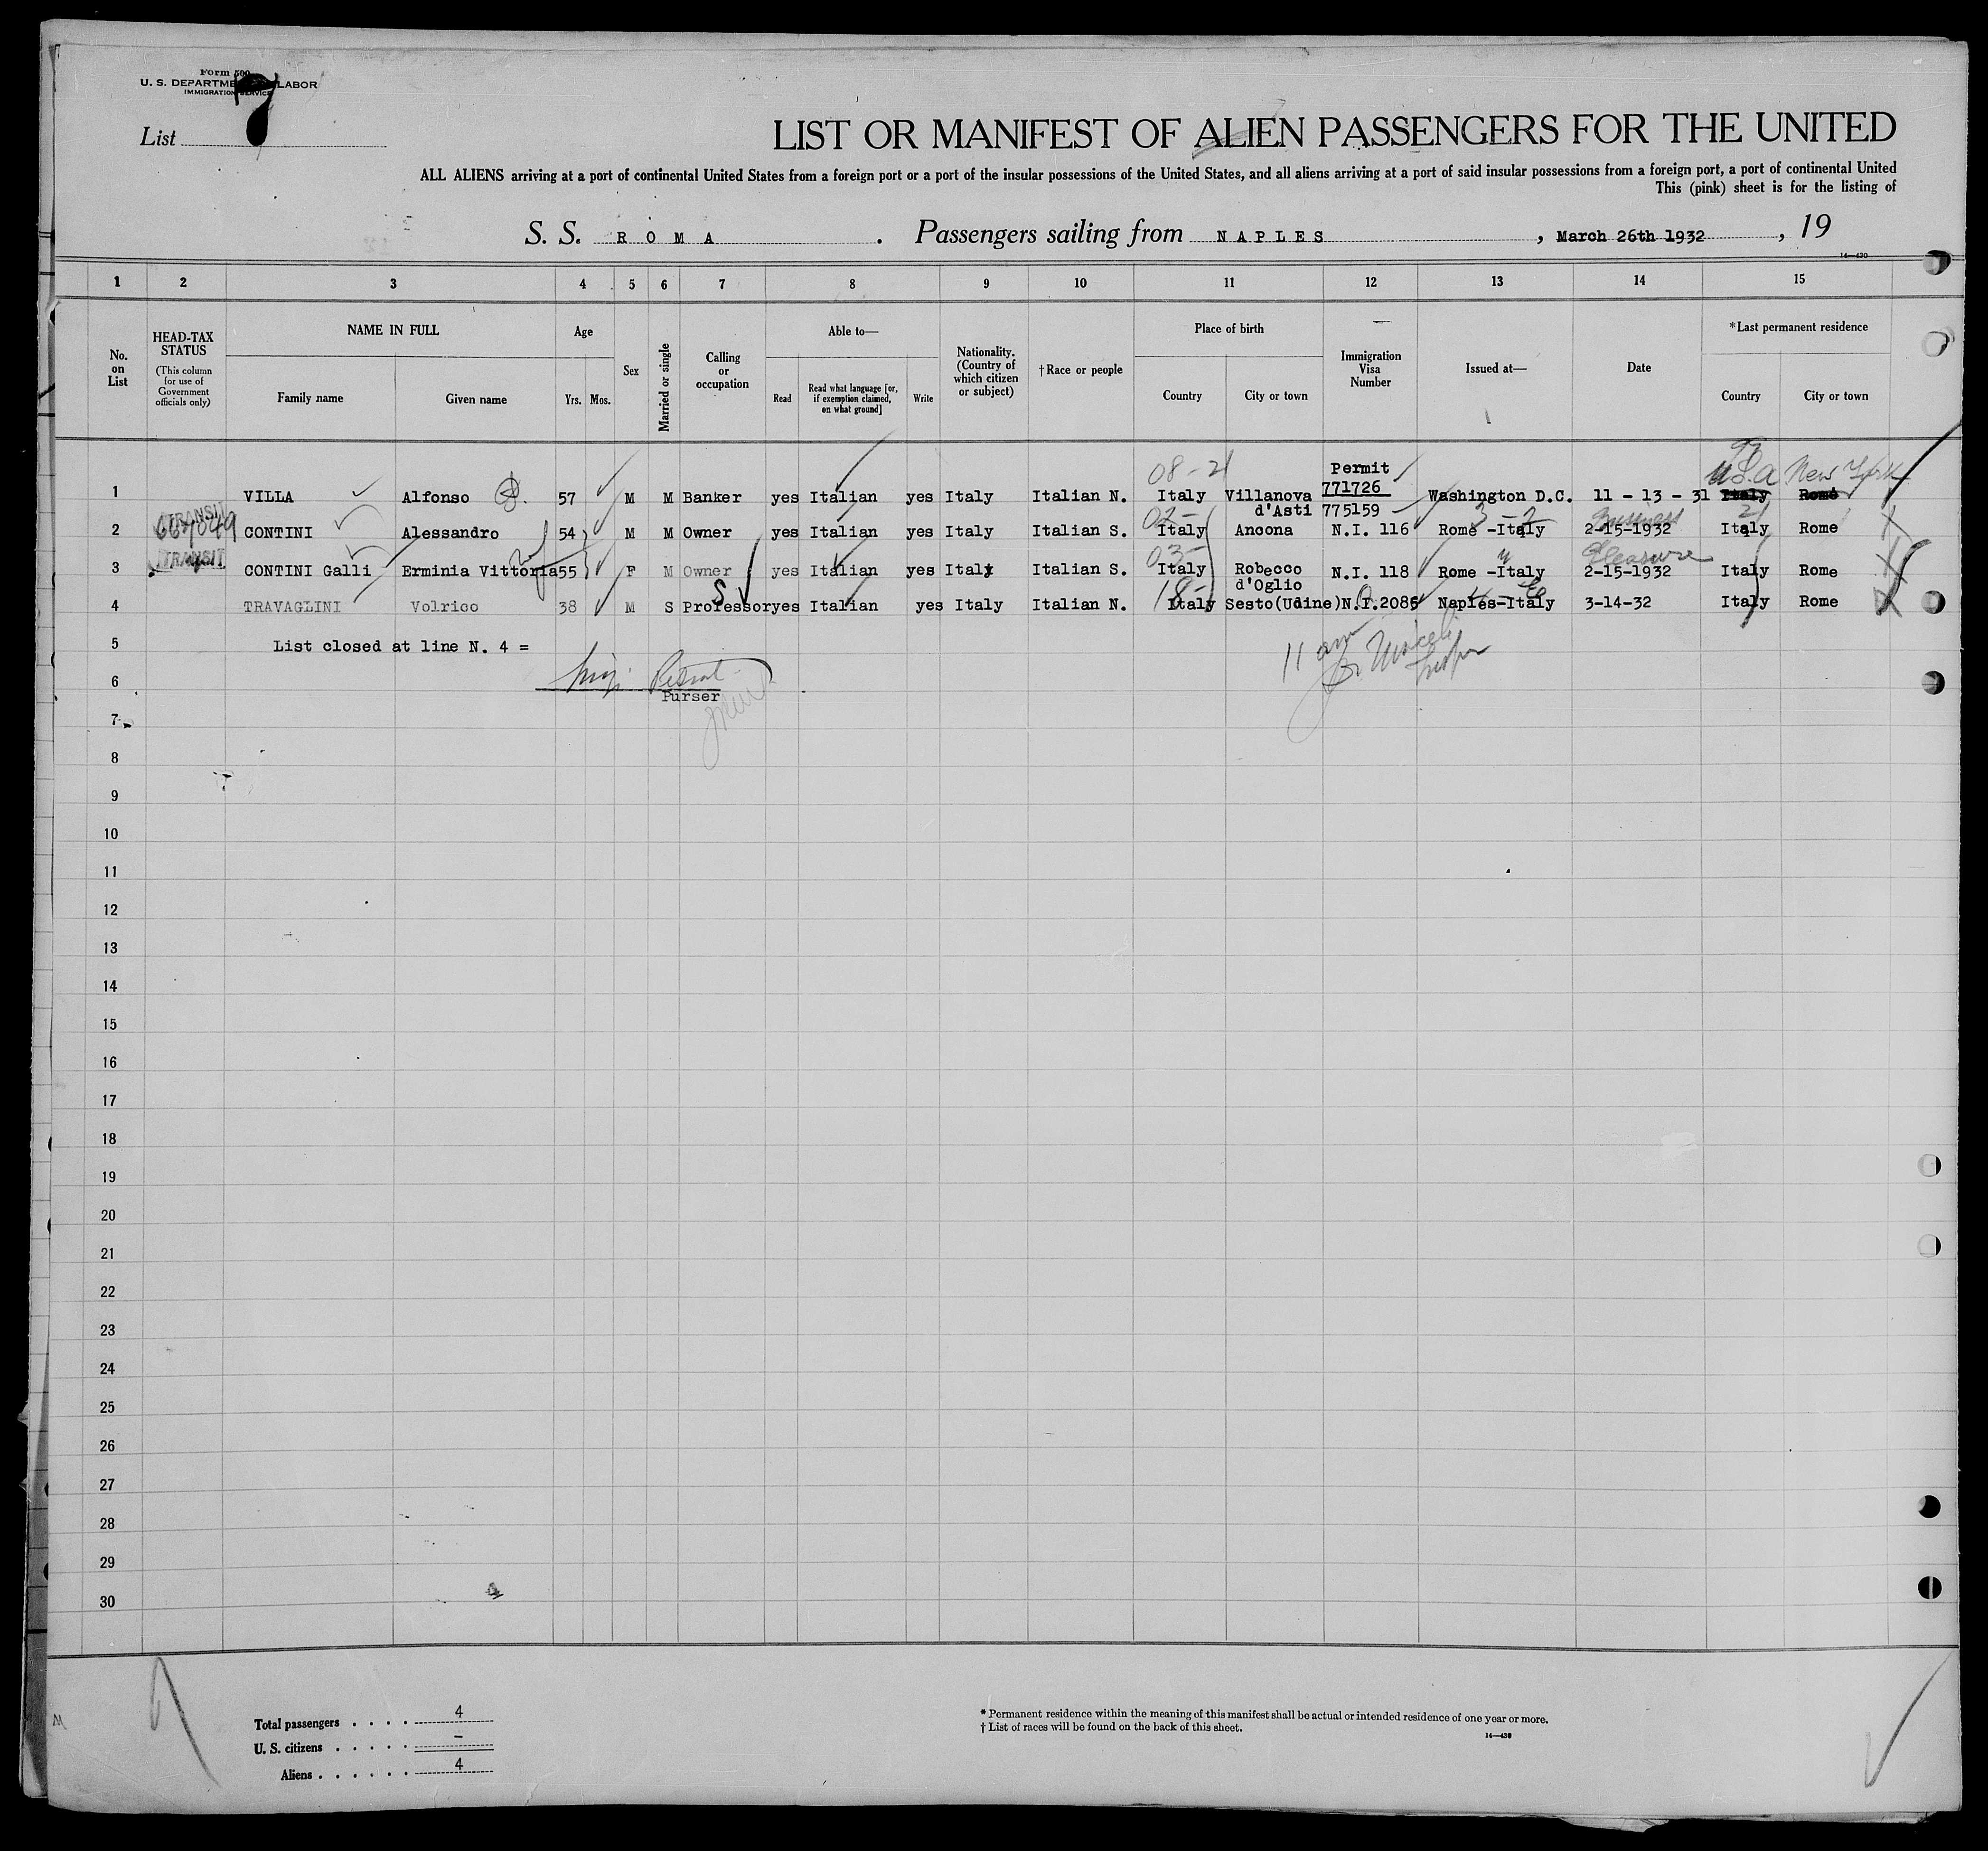 Form 500
U. S. DEPARTMENT OF LABOR
IMMIGRATION SERVICE
List 7
LIST OR MANIFEST OF ALIEN PASSENGERS FOR THE UNITED
ALL ALIENS arriving at a port of continental United States from a foreign port or a port of the insular possessions of the United States, and all aliens arriving at a port of said insular possessions from a foreign port, a port of continental United
This (pink) sheet is for the listing of
S. S. ROMA . Passengers sailing from NAPLES , March 26th 1932 , 19
14—430
1 2 3 4 5 6 7 8 9 10 11 12 13 14 15
No. on List
HEAD-TAX STATUS
(This column for use of Government officials only)
NAME IN FULL
Family name Given name
Age
Yrs. Mos.
Sex
Married or single
Calling or occupation
Able to—
Read
Read what language [or, if exemption claimed, on what ground]
Write
Nationality. (Country of which citizen or subject)
†Race or people
Place of birth
Country City or town
Immigration Visa Number
Issued at—
Date
*Last permanent residence
Country City or town
08-21 Permit U.S.a New York
1 VILLA Alfonso 57 M M Banker yes Italian yes Italy Italian N. Italy Villanova 771726 Washington D.C. 11 - 13 - 31 Italy Rome
d'Asti 775159
TRANSIT 02- 3-2 Business 21
2 667049 CONTINI Alessandro 54 M M Owner yes Italian yes Italy Italian S. Italy Ancona N.I. 116 Rome -Italy 2-15-1932 Italy Rome
TRANSIT 03- Pleasure
3 CONTINI Galli Erminia Vittoria 55 F M Owner yes Italian yes Italy Italian S. Italy Robecco N.I. 118 Rome -Italy 2-15-1932 Italy Rome
d'Oglio
S 18-
4 TRAVAGLINI Volrico 38 M S Professor yes Italian yes Italy Italian N. Italy Sesto(Udine) N.I.2085 Naples-Italy 3-14-32 Italy Rome
5 List closed at line N. 4 =
11 am
6
Purser
7
8
9
10
11
12
13
14
15
16
17
18
19
20
21
22
23
24
25
26
27
28
29
30
Total passengers . . . . 4
U. S. citizens . . . . . –
Aliens . . . . . . 4
* Permanent residence within the meaning of this manifest shall be actual or intended residence of one year or more.
† List of races will be found on the back of this sheet.
14—430